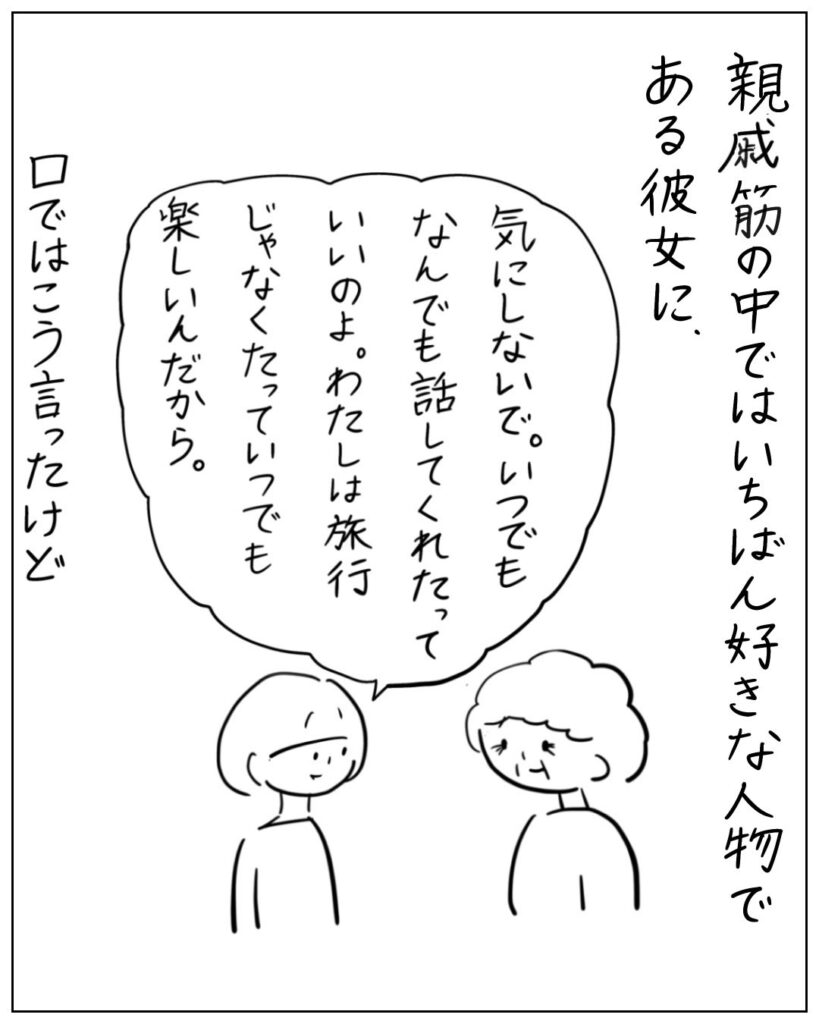 親戚筋の中ではいちばん好きな人物で
ある彼女に、
気にしないで。いつでも
なんでも話してくれたって
いいのよ。わたしは旅行
じゃなくたっていつでも
楽しいんだから。
口ではこう言ったけど